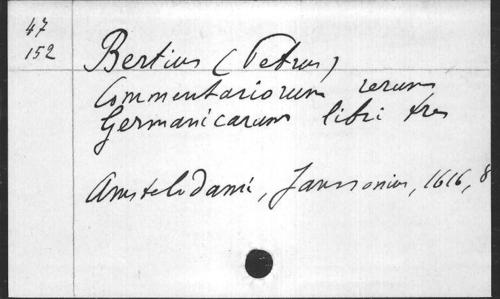 47
152
Bertius (Petrus)
Commentariorum rerum
Germanicarum libri tres
Amstelodami, Janssonius, 1616, 8